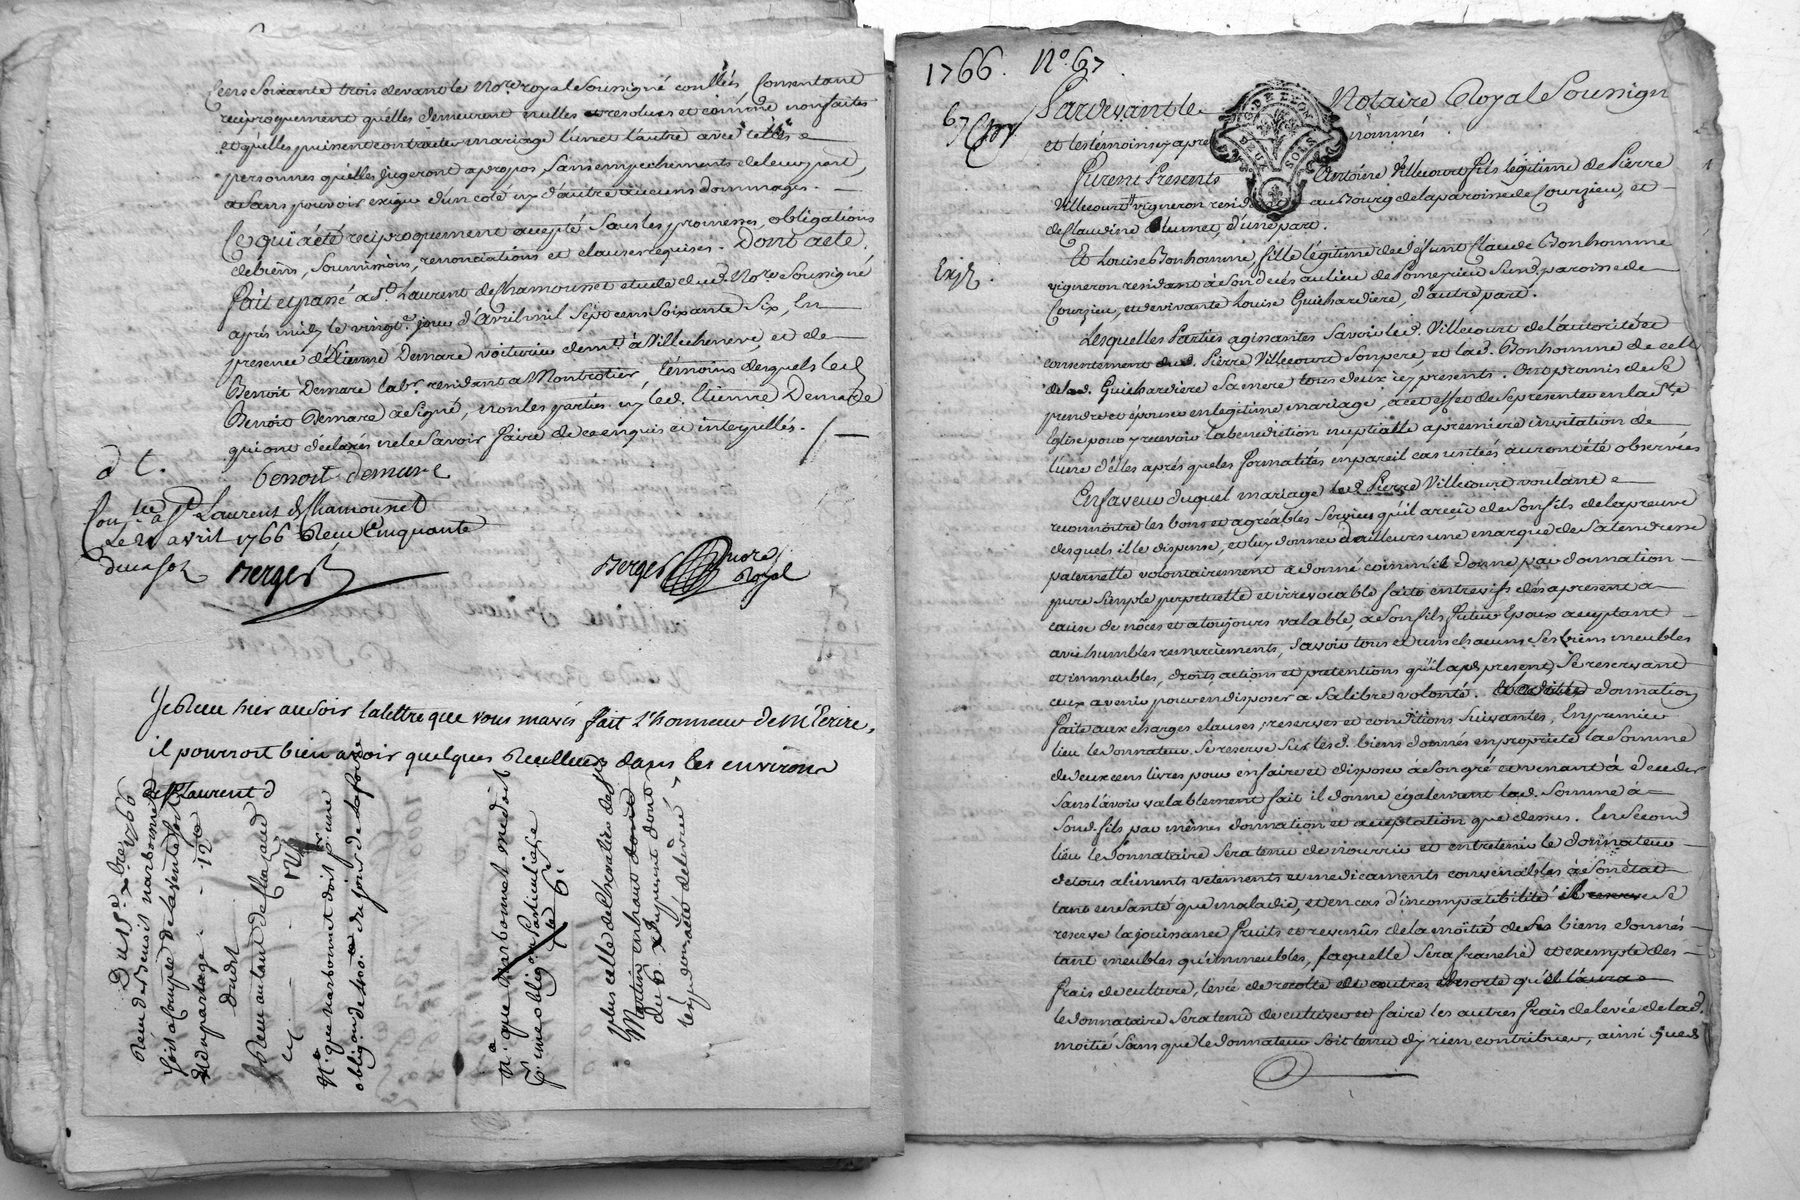 Cens Soixante trois devant le No.re royal Soussigné consentant
réciproquement qu'elles demeurent nulles et resolues et comme non faites
et qu'elles puissent contracter mariage l'un et l'autre avec telles
personnes qu'elles jugeront apropos, Sans empechements de leur part,
et Sans pouvoir exiger d'un coté ny d'autre aucuns dommages.
Ce qui a été réciproquement accepté Sous les promesses, obligations
de biens, Soumissions, renonciations et clauses requises. Dont acte.
fait et passé a St. Laurent de Chamousset etude dud. No.re Soussigné
après midy le vingt.e jour d'Avril mil Sept cens Soixante Six, En
presence d'Etienne Demare voiturier demt. à Villechenève, et de
Benoit Demare labr. residant a Montrotier témoins desquels led.
Benoit Demare a Signé, non les parties ny led. Etienne Demare
qui ont declarés ne le Savoir faire de ce enquis et interpellés.
benoit demare
Con.lée a St. Laurent de Chamousset
Le 21 avril 1766 Reçu Cinquante
Berger
Berger no.re
Royal
Je Reçu hier au Soir la lettre que vous mavés fait l'honneur de m'Ecrire,
il pourroit bien avoir quelques dans les environs
de St Laurent d
Du 15.e 1766
Reçu de Benoit narbonnet
Soit a Compte de la vente
partage - 12
Dudit
Reçu autant de
12
N.a que narbonnet doit p.r une
oblig.on de 400. du jour de
N.a que narbonnet me doit
p.r une oblig.on Particuliere
6
plus celle de
Martin
du 6
1766. No. 67
67
Pardevant le Notaire Royal Soussign
et les témoins cy après nommés.
Furent Presents Antoine Villecourt fils légitime de Pierre
Villecourt vigneron residant au Bourg de la paroisse de Courzieu, et
de Claudine d'une part.
Exp.
Et Louise Bonhomme, fille légitime de défunt Claude Bonhomme
vigneron residant à Son decès au lieu de Susd. paroisse de
Courzieu, et de vivante Louise Guichardiere, d'autre part.
Lesquelles Parties agissantes Savoir led. Villecourt de l'autorité et
consentement dud. Pierre Villecourt Son pere, et lad. Bonhomme de celle
de lad. Guichardiere Sa mere tous deux icy presents. Ont promis de Se
prendre et épouser en legitime mariage, à cet effet de Se presenter en la Ste.
Eglise pour y recevoir la benediction nuptialle a premiere invitation de
l'une d'elles après que les formalités en pareil cas usitées auront été observées
En faveur duquel mariage led. Pierre Villecourt voulant
reconnoitre les bons et agréables Services qu'il a reçu de Son fils de la preuve
desquels il le dispense, et luy donner d'ailleurs une marque de Sa tendresse
paternelle volontairement a donné comm'il donne par donnation
pure Simple perpetuelle et irrevocable faite entre vifs dès apresent a
cause de nôces et a toujours valable, a Son fils futur Epoux acceptant
avec humbles remerciements, Savoir tous et uns chacuns Ses biens meubles
et immeubles, droits, actions et pretentions qu'il a present, Se reservant
ceux avenir pour en disposer a Sa libre volonté. donnation
faite aux charges clauses, réserves et conditions Suivantes, En premier
lieu le donnateur Se reserve Sur lesd. biens donnés en propriété la Somme
de deux cens livres pour en faire et disposer à Son gré et venant à deceder
Sans l'avoir valablement fait il donne également lad. Somme à
Sond. fils par mêmes donnation et acceptation que dessus. En Second
lieu le donnataire Sera tenu de nourrir et entretenir le donnateur
de tous aliments vetements et medicaments convenables à Son état
tant en Santé que maladie, et en cas d'incompatibilité il Se
reserve la jouissance fruits et revenus de la moitié de Ses biens donnés
tant meubles qu'immeubles, laquelle Sera franche et exempte des
frais de culture, levée de recolte et autres de sorte que
le donnataire Sera tenu de cultiver et faire les autres frais de levée de lad.
moitié Sans que le donnateur Soit tenu d'y rien contribuer, ainsi que